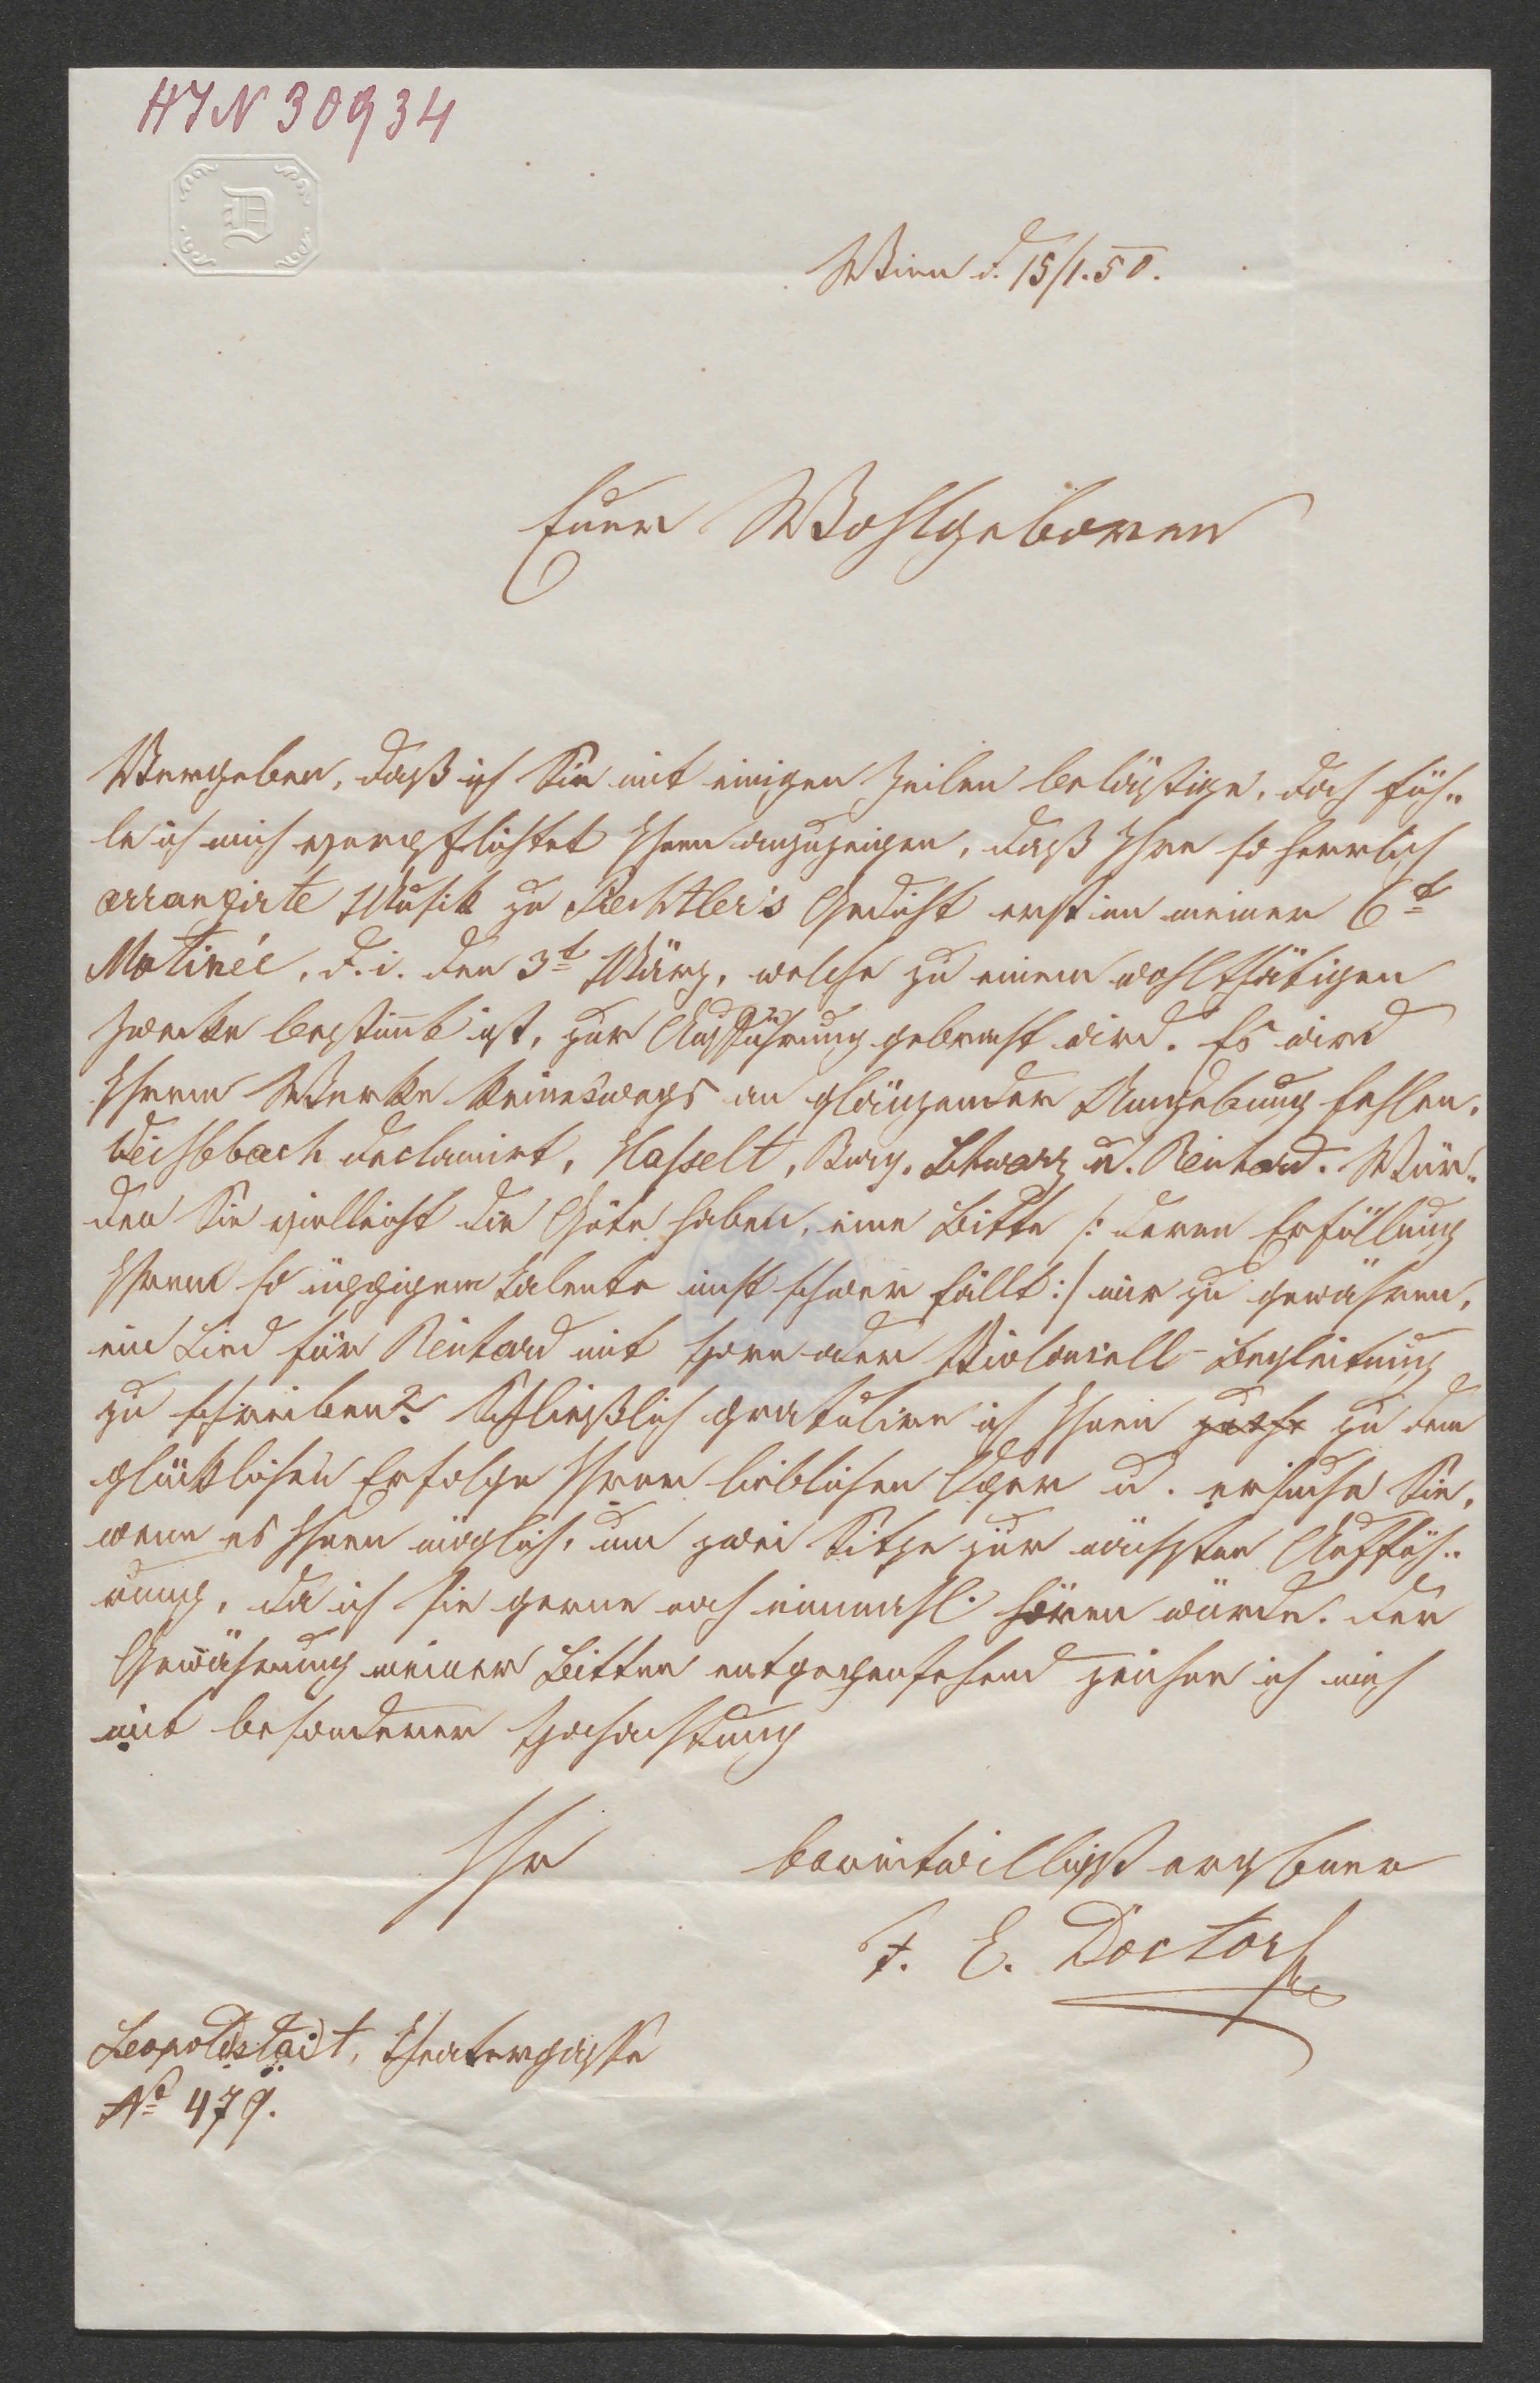 HIN 30934
D
Wien d. 15/1. 50.
Euer Wohlgeboren
Vergeben, daß ich Sie mit einigen Zeilen belästige, doch füh„
le ich mich verpflichtet Ihnen anzuzeigen, daß Ihre so herrlich
arrangirte Musik zu Gedicht erst in meiner 6t
Matineé, d. i. den 3t März, welche zu einem wohlthätigen
Zwecke bestimmt ist, zur Aufführung gebracht wird. Es wird
Ihrem Werke keineswegs an glänzender Umgebung fehlen.
declamirt, Hasselt, Bury, Schwarz u. Reichard. Wür„
den Sie vielleicht die Güte haben, eine Bitte /: deren Erfüllung
Ihrem so üppigem Talente nicht schwer fällt :/ mir zu gewähren,
ein Lied für Reichard mit Horn oder Violoncell-Begleitung
zu schreiben? Schließlich gratulire ich Ihnen zu dem
glücklichen Erfolge Ihrer lieblichen Oper u. ersuche Sie,
wenn es Ihnen möglich, um zwei Sitze zur nächsten Auffüh„
rung, da ich sie gerne noch einmahl hören würde. Der
Gewährung meiner Bitten entgegensehend zeichne ich mich
mit besonderer Hochachtung
Ihr bereitwilligst ergebner
F. E. Doctor
Leopoldstadt, Theatergasse
No 479.